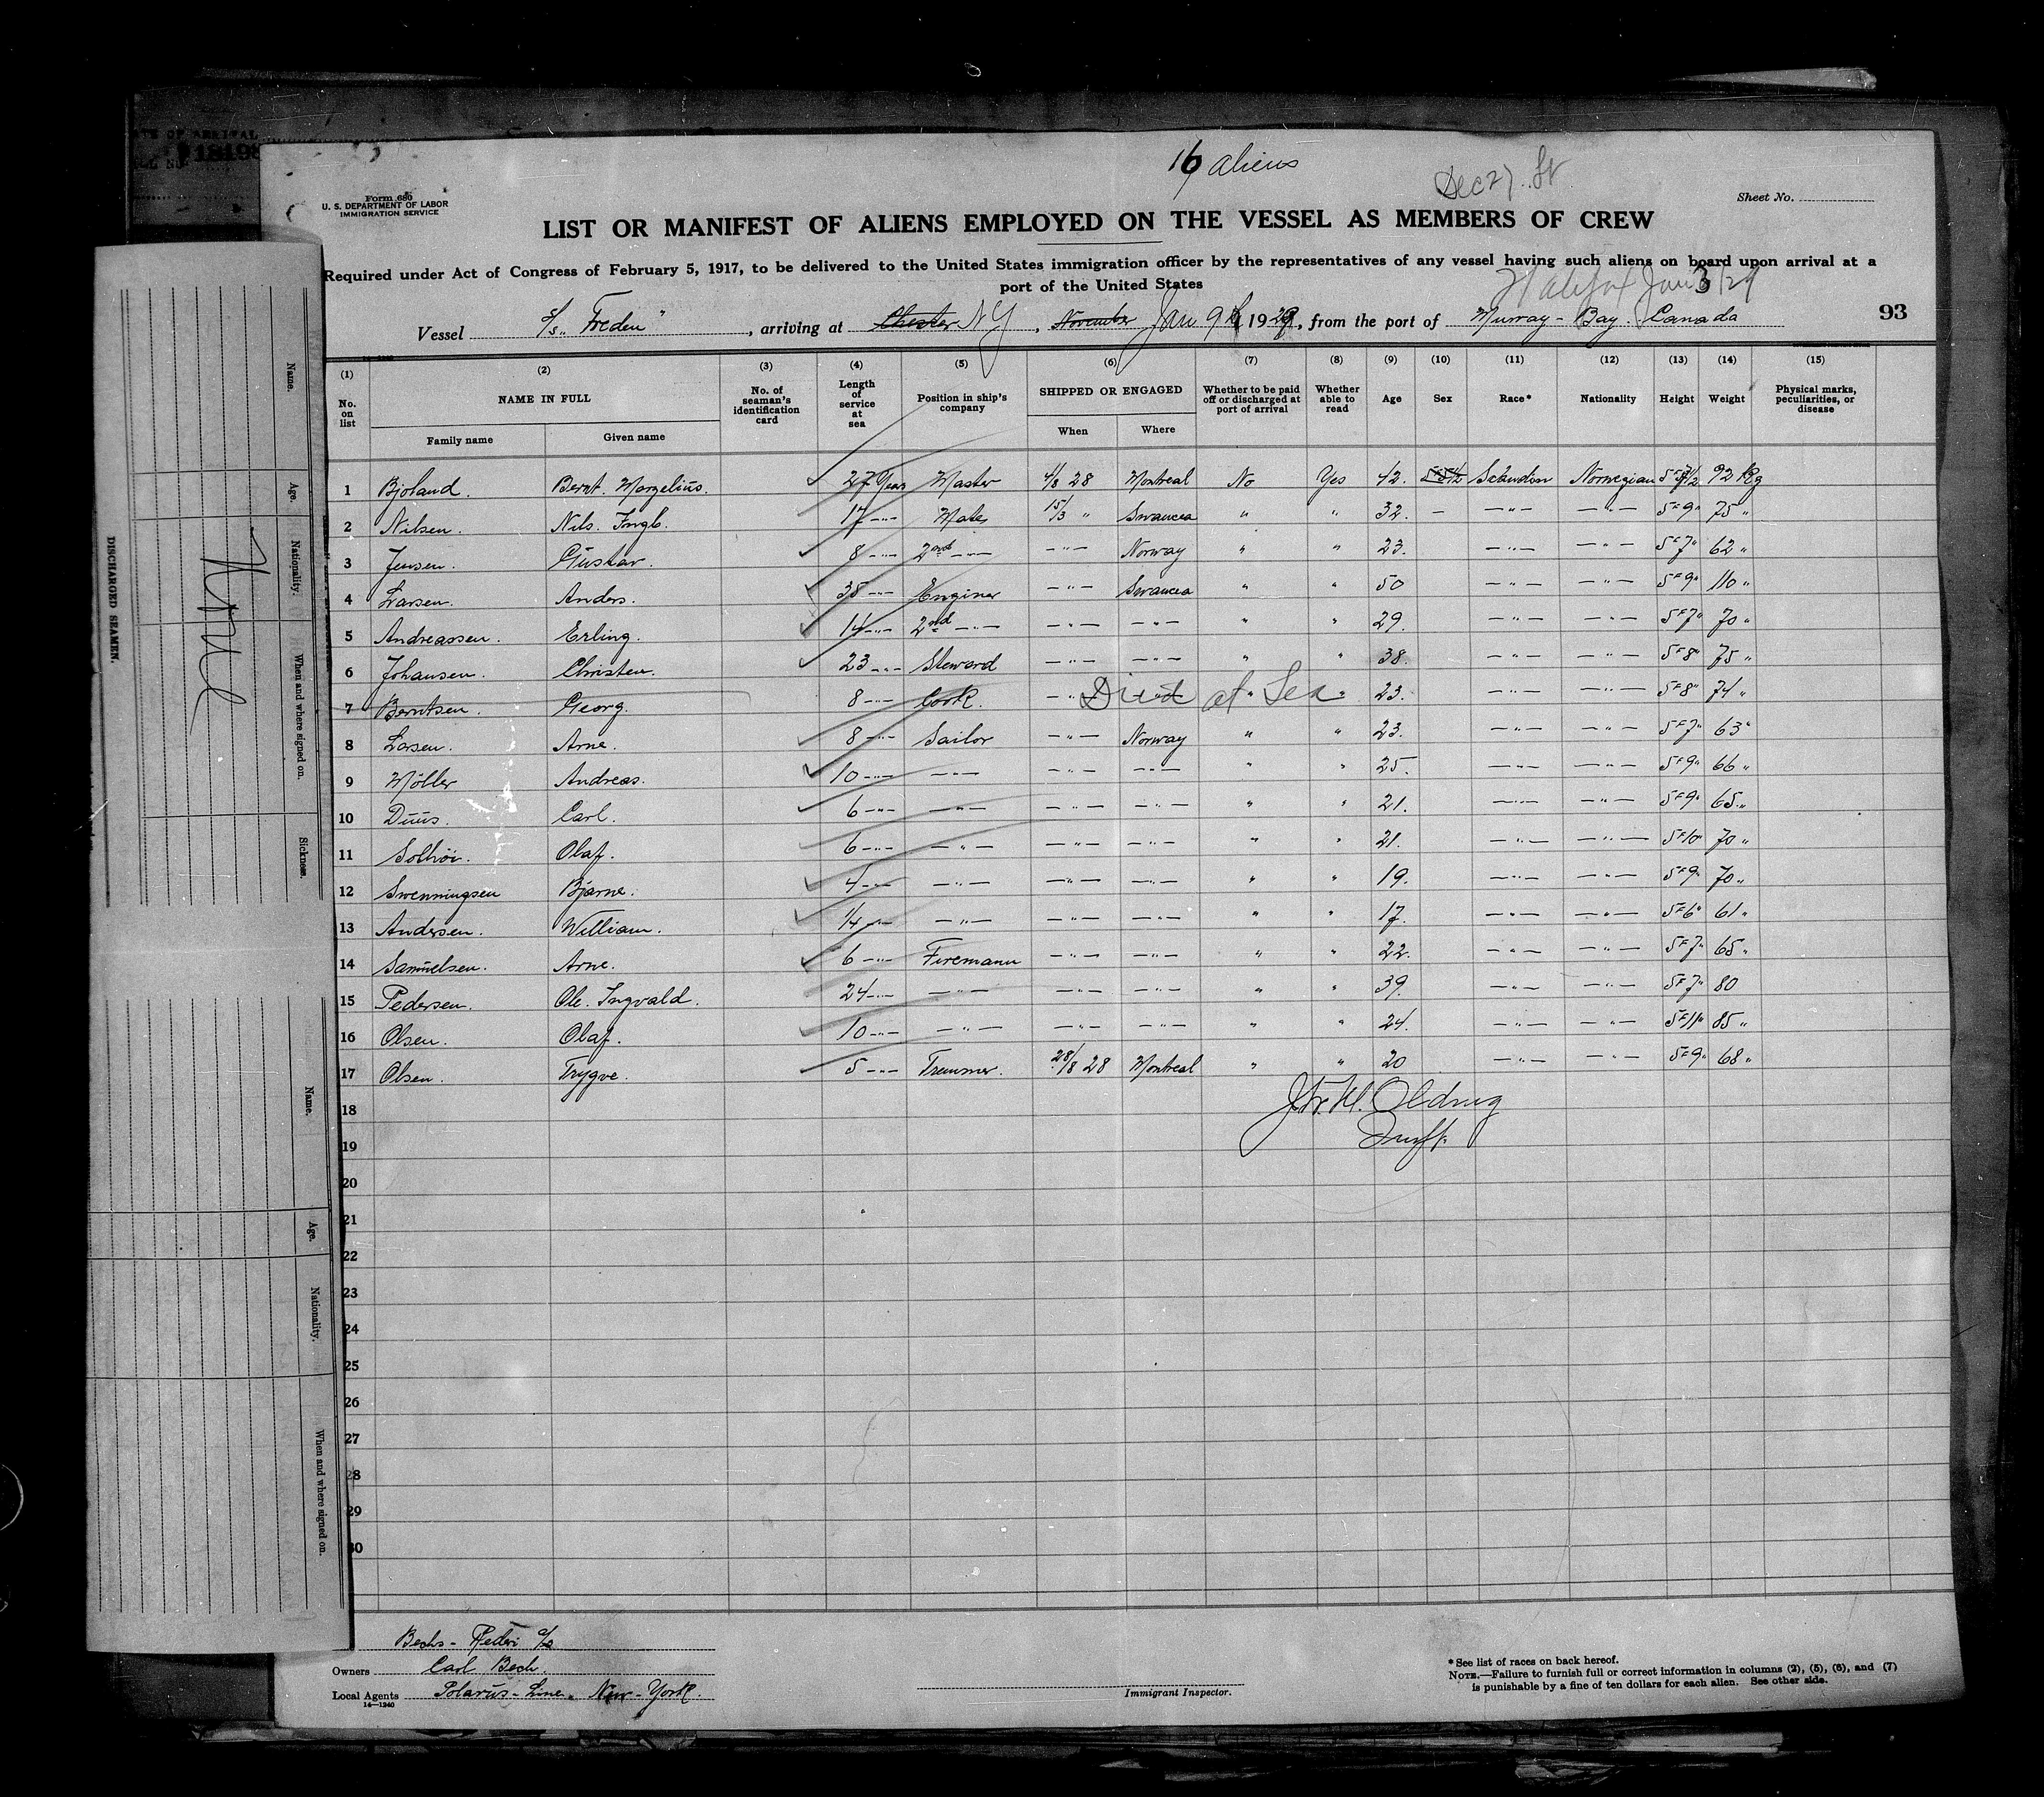 16 aliens
Dec 27. St
Form 680
U. S. DEPARTMENT OF LABOR
IMMIGRATION SERVICE
Sheet No.
LIST OR MANIFEST OF ALIENS EMPLOYED ON THE VESSEL AS MEMBERS OF CREW
Required under Act of Congress of February 5, 1917, to be delivered to the United States immigration officer by the representatives of any vessel having such aliens on board upon arrival at a
port of the United States
Halifax Jan 3/29
Vessel S/S. "Freden", arriving at Chester NY, November Jan 9 1929, from the port of Murray-Bay. Canada
93
(1) (2) (3) (4) (5) (6) (7) (8) (9) (10) (11) (12) (13) (14) (15)
No. on list NAME IN FULL Family name Given name No. of seaman's identification card Length of service at sea Position in ship's company SHIPPED OR ENGAGED When Where Whether to be paid off or discharged at port of arrival Whether able to read Age Sex Race* Nationality Height Weight Physical marks, peculiarities, or disease
1 Bjoland. Bernt. Margelius. 27 Years Master 4/8 28 Montreal No Yes 42. Norwegian 92 Kg
2 Nilsen. Nils. Ingb. 17 -"- Mate 15/3 " Swancea " " 32. - -"- -"- 5F9" 75 "
3 Jensen. Gustav. 8 -"- 2nd -"- -"- Norway " " 23. -"- -"- 5F7" 62 "
4 Larsen. Anders. 35 -"- Enginer -"- Swancea " " 50 -"- -"- 5F9" 110 "
5 Andreassen. Erling. 14 -"- 2nd -"- -"- -"- " " 29. -"- -"- 5F7" 70 "
6 Johansen. Christen. 23 -"- Steward -"- -"- " " 38. -"- -"- 5F8" 75 "
7 Berntsen. Georg. 8 -"- Cook. -"- Died at Sea " 23. -"- -"- 5F8" 74 "
8 Larsen. Arne. 8 -"- Sailor -"- Norway " " 23. -"- -"- 5F7" 63"
9 Möller Andreas. 10 -"- -"- -"- -"- " " 25. -"- -"- 5F9" 66 "
10 Duus. Carl. 6 -"- -"- -"- -"- " " 21. -"- -"- 5F9" 65 "
11 Olaf. 6 -"- -"- -"- -"- " " 21. -"- -"- 5F10" 70 "
12 Swenningsen Bjarne. 4 -"- -"- -"- -"- " " 19. -"- -"- 5F9" 70 "
13 Andersen. William. -"- -"- -"- -"- " " 17. -"- -"- 5F6" 61 "
14 Samuelsen. Arne. 6 -"- Firemann -"- -"- " " 22. -"- -"- 5F7" 65 "
15 Pedersen. Ole. Ingvald. 24 -"- -"- -"- -"- " " 39. -"- -"- 5F7" 80
16 Olsen. Olaf. 10 -"- -"- -"- -"- " " 24. -"- -"- 5F11" 85 "
17 Olsen. Trygve. 5 -"- Tremmer. 28/8 28 Montreal " " 20 -"- -"- 5F9" 68 "
18
19
20
21
22
23
24
25
26
27
28
29
30
Bechs-Rederi A/S
Owners Carl Bech.
Local Agents Polarus-Line. New-York.
14—1240
Immigrant Inspector.
*See list of races on back hereof.
NOTE.—Failure to furnish full or correct information in columns (2), (5), (6), and (7)
is punishable by a fine of ten dollars for each alien. See other side.
DISCHARGED SEAMEN.
Name. Age. Nationality. When and where signed on. Sickness.
None
Name. Age. Nationality. When and where signed on.